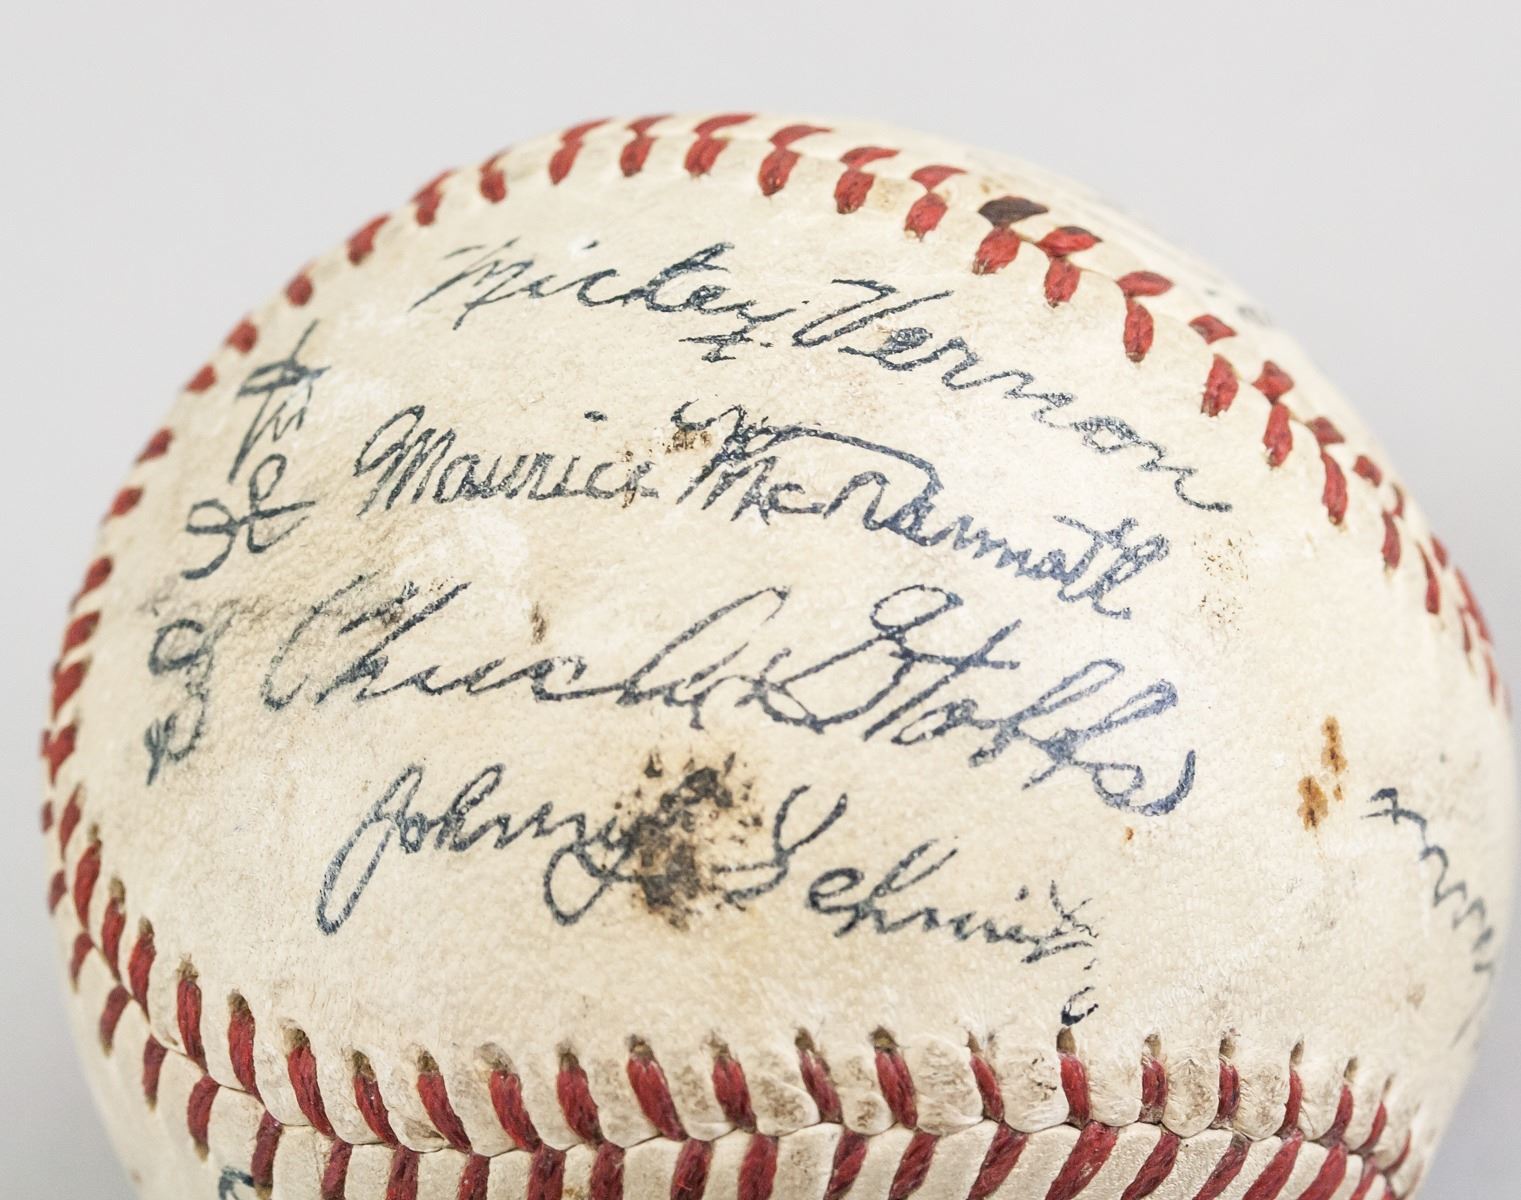 Mickey Vernon
Maurice McDermott
Chuck Stobbs
Johnny Schmitz